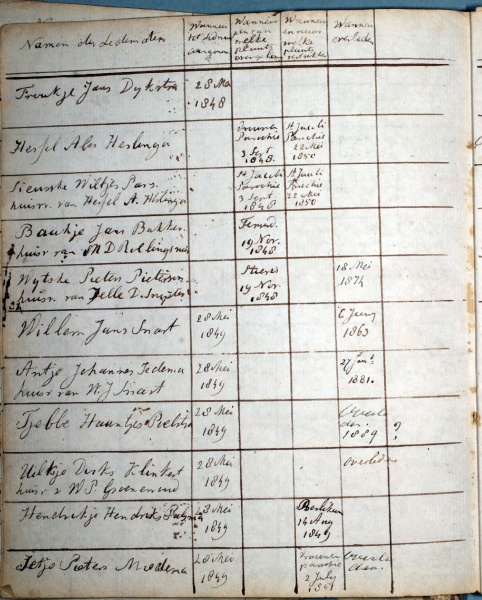 Namen der Ledematen
Wanneer
tot Lidmaat
aangenomen
Wanneer
en van
welke
plaats
overgekomen
Wanneer
en naar
welke
plaats
vertrokken
Wanneer
overleden
Froukje Jans Dykstra
28 Mei
1848
Hessel Ales Heslinga
Parochie
3 Sept
1848
St Jacobi
Parochie
22 Mei
1850
Sienske Wiltjes Pars.
huisvr. van Hessel A. Heslinga
St Jacobi
Parochie
3 Sept
1848
St Jacobi
Parochie
22 Mei
1850
Baukje Jans Bakker
huisvr van M D Rollingswier
19 Nov.
1848
Wytske Pieters Pietersen
huisvr. van Jelle D.
19 Nov
1848
18 Mei
1874
Willem Jans Smart
28 Mei
1849
6 Juny
1863
Antje Johannes Tedema
huisvr van W J Smart
28 Mei
1849
27 Jan
1881.
Tjebbe Haantjes Pielstra
28 Mei
1849
Overle
den
1889 ?
Uilkje Dirks Klinkert
huisvr v W. P. Groeneveld
28 Mei
1849
overleden
Hendrikje Hendriks
28 Mei
1849
Berlikum
14 Aug
1849
Jetje Pieters Miedema
28 Mei
1849
parochie
2 July
1851
Overle
den.